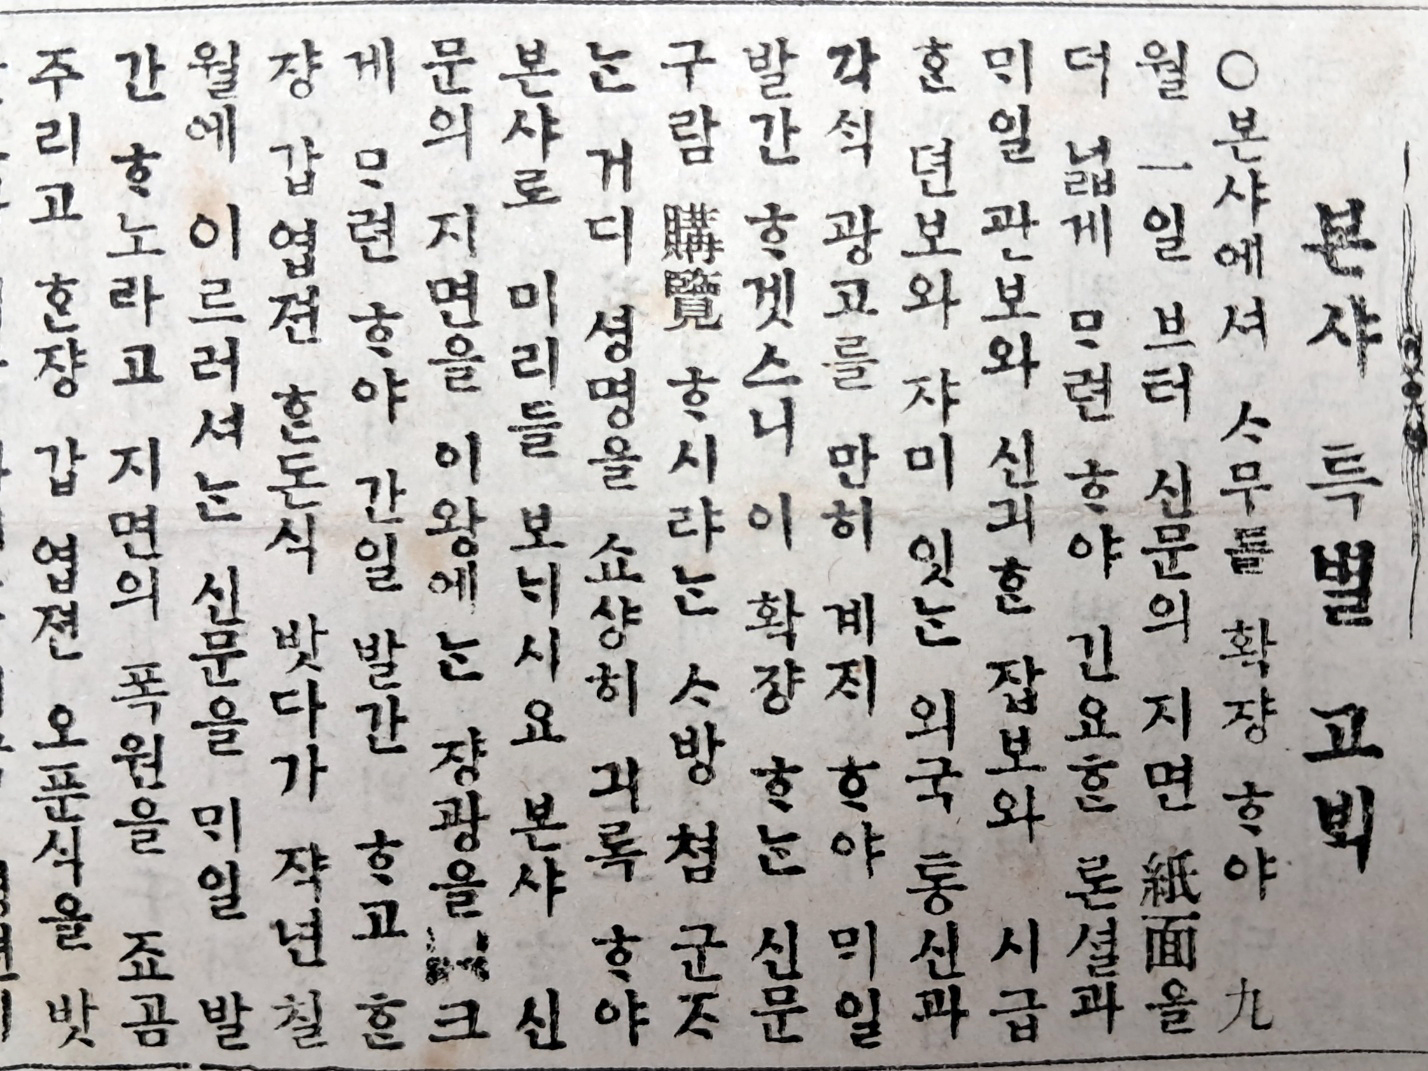 본샤 특별 고ᄇᆡᆨ
○본샤에셔 ᄉᆞ무를 확쟝 ᄒᆞ야 九
월 一일 브터 신문의 지면 紙面을
더 넓게 ᄆᆞ련 ᄒᆞ야 긴요ᄒᆞᆫ 론셜과
ᄆᆡ일 관보와 신긔ᄒᆞᆫ 잡보와 시급
ᄒᆞᆫ 뎐보와 쟈미 잇ᄂᆞᆫ 외국 통신과
각ᄉᆡᆨ 광고를 만히 계ᄌᆡ ᄒᆞ야 ᄆᆡ일
발간 ᄒᆞ겟스니 이 확쟝 ᄒᆞᄂᆞᆫ 신문
구람 購覽 ᄒᆞ시랴ᄂᆞᆫ ᄉᆞ방 쳠 군ᄌᆞ
ᄂᆞᆫ 거디 셩명을 쇼샹히 긔록 ᄒᆞ야
본샤로 미리들 보ᄂᆡ시요 본샤 신
문의 지면을 이왕에ᄂᆞᆫ 쟝광을 크
게 ᄆᆞ련 ᄒᆞ야 간일 발간 ᄒᆞ고 ᄒᆞᆫ
쟝 갑 엽젼 ᄒᆞᆫ돈식 밧다가 쟉년 칠
월에 이르러셔ᄂᆞᆫ 신문을 ᄆᆡ일 발
간 ᄒᆞ노라고 지면의 폭원을 죠곰
주리고 ᄒᆞᆫ쟝 갑 엽젼 오푼식을 밧